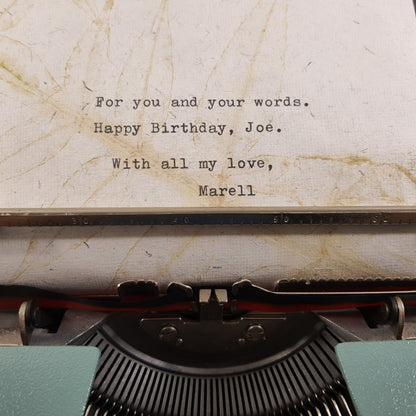 For you and your words.
Happy Birthday, Joe.
With all my love,
Marell